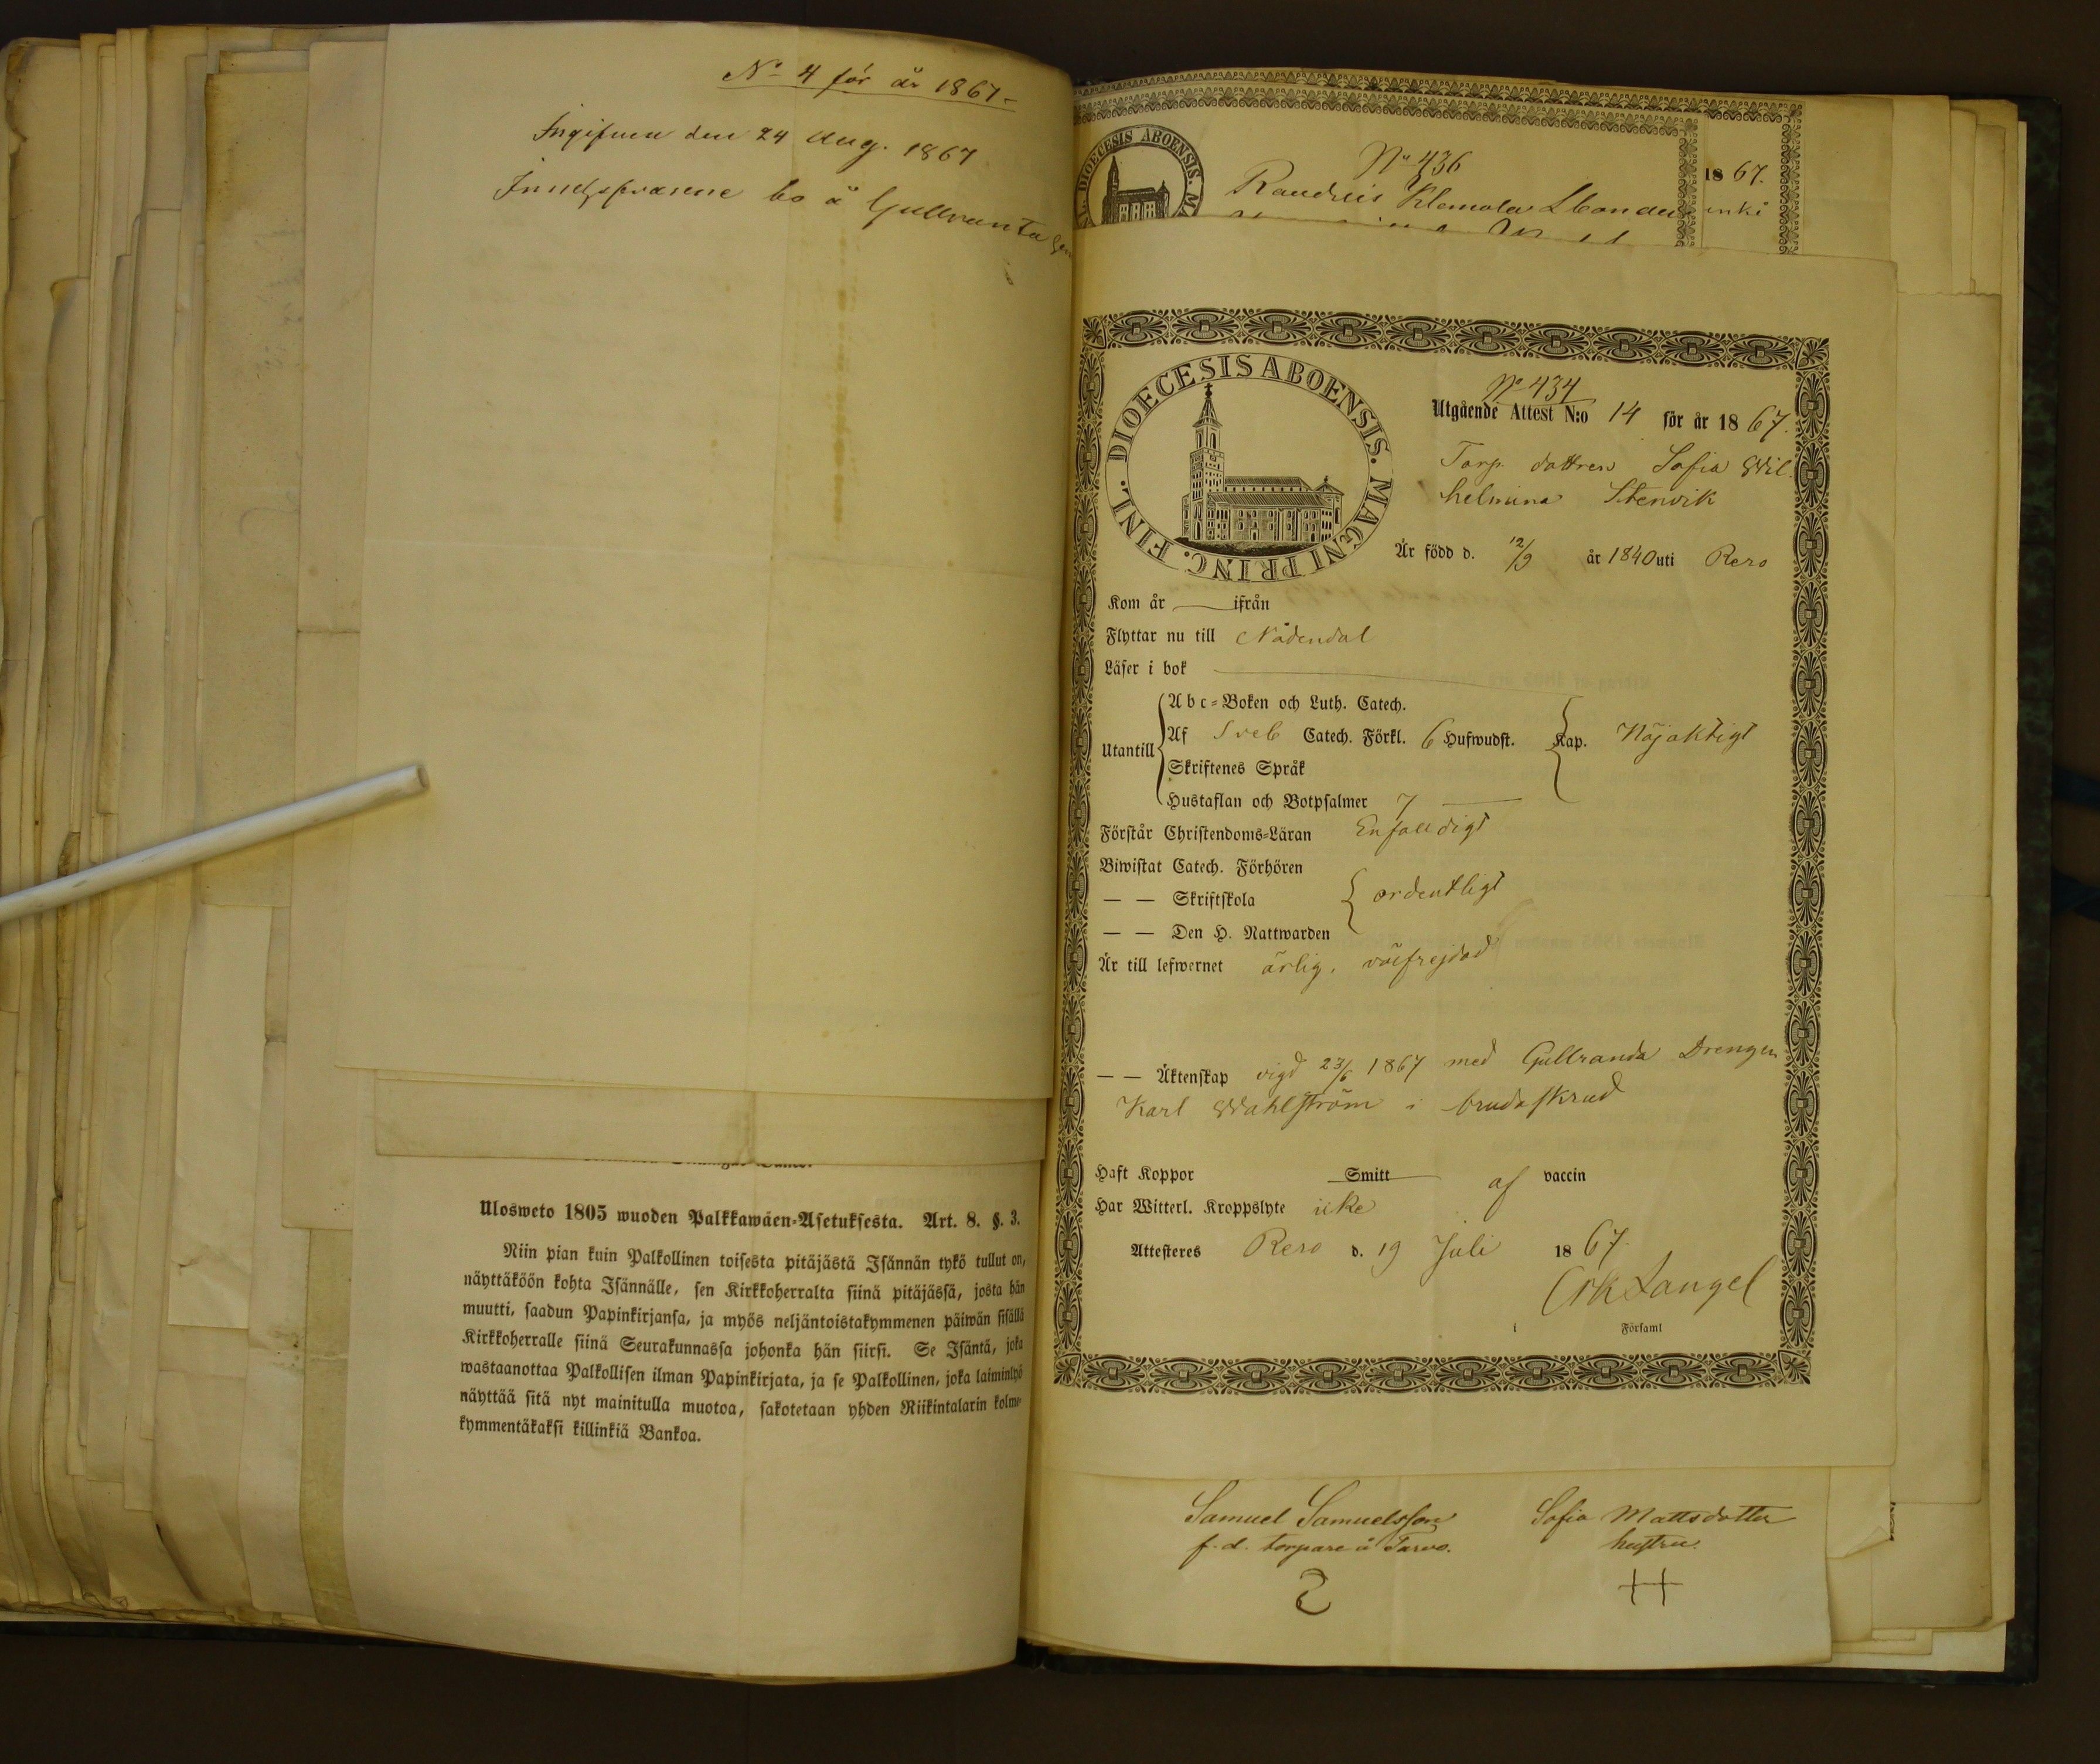 No 4 för år 1867
Ingifven den 24 Aug. 1867
bo å Gullranta
Ulosweto 1805 wuoden Palkkawäen-Asetuksesta. Art. 8. §. 3.
Niin pian kuin Palkollinen toisesta pitäjästä Isännän tykö tullut on,
näyttäköön kohta Isännälle, sen Kirkkoherralta siinä pitäjässä, josta hän
muutti, saadun Papinkirjansa, ja myös neljäntoistakymmenen päiwän sisällä
Kirkkoherralle siinä Seurakunnassa johonka hän siirsi. Se Isäntä, joka
wastaanottaa Palkollisen ilman Papinkirjata, ja se Palkollinen, joka laiminlyö
näyttää sitä nyt mainitulla muotoa, sakotetaan yhden Riikintalarin kolme-
kymmentäkaksi killinkiä Bankoa.
DIOECESIS ABOENSIS. M
No 436
1867.
Klemola
No 434
DIOECESIS ABOENSIS. MAGNI PRINC. FINL.
Utgående Attest N:o 14 för år 1867.
Torp. dottren Sofia Wil-
helmina Stenvik
Är född d. 12/9 år 1840 uti Reso
Kom år — ifrån
Flyttar nu till Nådendal
Läser i bok —
Utantill
Abc-Boken och Luth. Catech.
Af Sveb Catech. Förkl. 6 Hufwudst. Kap. Nöjaktigt
Skriftenes Språk
Hustaflan och Botpsalmer 7 —
Förstår Christendoms-Läran Enfalldigt
Biwistat Catech. Förhören
— — Skriftskola ordentligt
— — Den H. Nattwarden
Är till lefwernet ärlig, välfrejdad
— — Äktenskap vigd 23/6 1867 med Gullranda Drengen
Karl Wahlström i brudskrud
Haft Koppor Smitt af vaccin
Har Witterl. Kroppslyte icke
Attesteres Reso d. 19 Juli 1867.
Langel
i Församl
Samuel Samuelsson Sofia Mattsdotter
f.d. torpare å Tarvo. hustru.